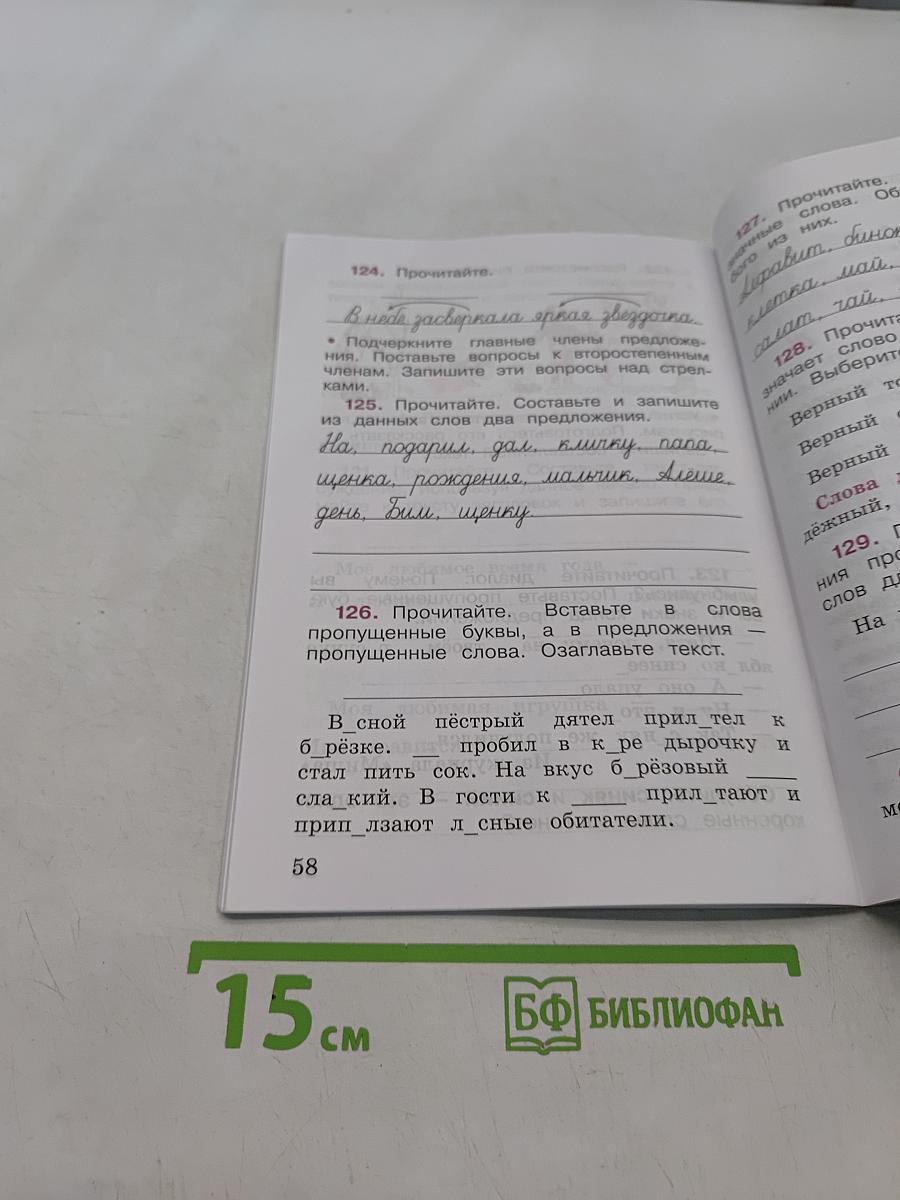 124. Прочитайте.
В небе засверкала яркая звездочка.
• Подчеркните главные члены предложе-
ния. Поставьте вопросы к второстепенным
членам. Запишите эти вопросы над стрел-
ками.
125. Прочитайте. Составьте и запишите
из данных слов два предложения.
На, подарил, дал, кличку, папа,
щенка, рождения, мальчик, Алёше,
день, Бим, щенку.
126. Прочитайте. Вставьте в слова
пропущенные буквы, а в предложения —
пропущенные слова. Озаглавьте текст.
В_сной пёстрый дятел прил_тел к
б_рёзке. ____ пробил в к_ре дырочку и
стал пить сок. На вкус б_рёзовый ____
сла_кий. В гости к ____ прил_тают и
прип_лзают л_сные обитатели.
58
127. Прочитайте.
значные слова. Об
бого из них.
Алфавит, бинок
клетка, май,
салат, чай,
128. Прочита
значает слово
нии. Выберите
Верный то
Верный
Верный
Слова д
дёжный,
129. П
ния про
слов дл
На
15 см
БФ БИБЛИОФАН